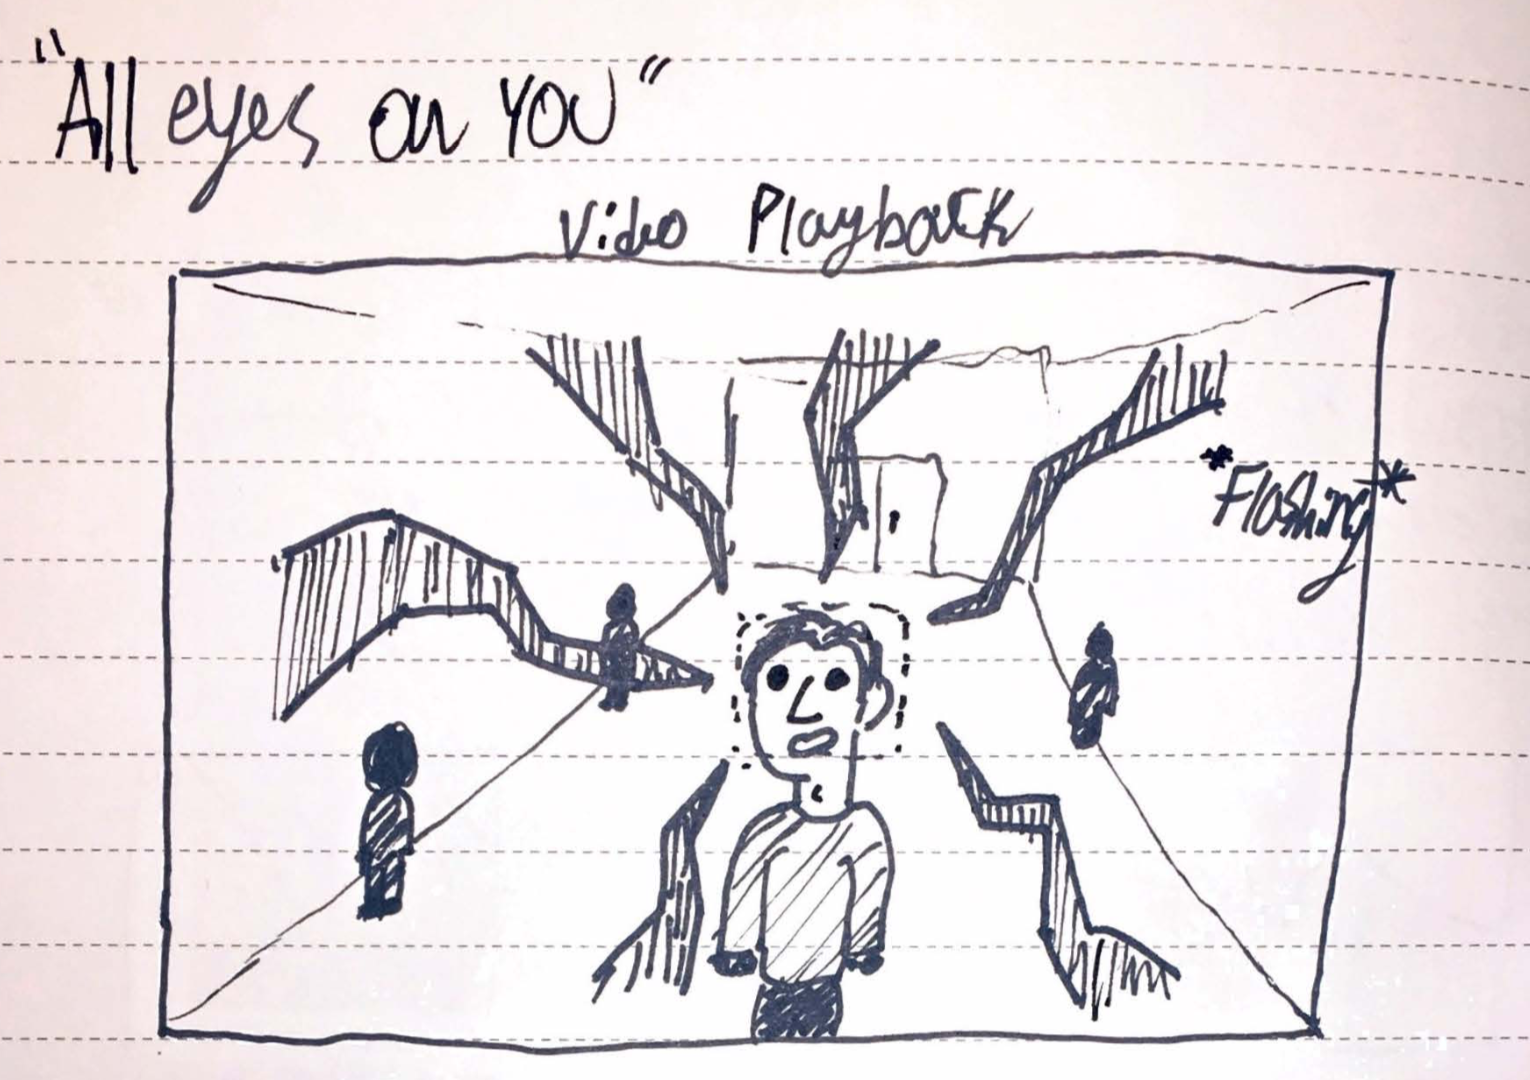 "All eyes on YOU"
Video Playback
*Flashing*